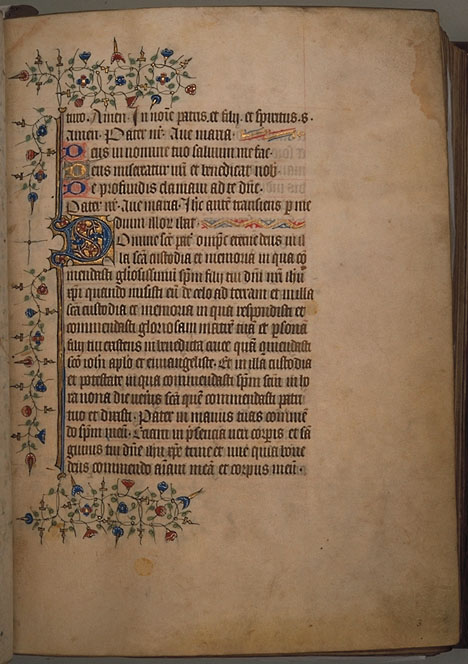 tuo. Amen. In noīe patris. et filij. et spiritus. s.
amen. Pater nr̄. Aue maria.
Deus in nomine tuo saluum me fac.
Deus misereatur nr̄i et benedicat nob̄
De profundis clamaui ad te dn̄e.
Pater nr̄. Aue maria. Ihc̄ autē transiens p̄ me
dium illor̄ ibat.
Domine sc̄e pat̄ omīpc̄ eterne deus in il
la sc̄a custodia et memoria in qua cō
mendasti gl̄iosissimū sp̄m filij tui dn̄i nr̄i ihū
xp̄i quando misisti eū de celo ad terram et in illa
sc̄a custodia et memoria in qua respondisti et
commendasti gloriosam matrē tuā et p̄sona
filij tui existens in benedicta cruce quā cōmendasti
sc̄o ioh̄i aplō et euuangeliste. Et in illa custodia
et potestate in qua commendasti sp̄m scm̄ in ho
ra nona die ueneris sc̄a quē commendasti patri
tuo et dixisti. Pater in manus tuas commē
do sp̄m meū. Et acerit in p̄sencia ueri corpis et sā
guinis tui dn̄e ihū xp̄e trine et une quia
deus commendo aīam meā et corpus meū.